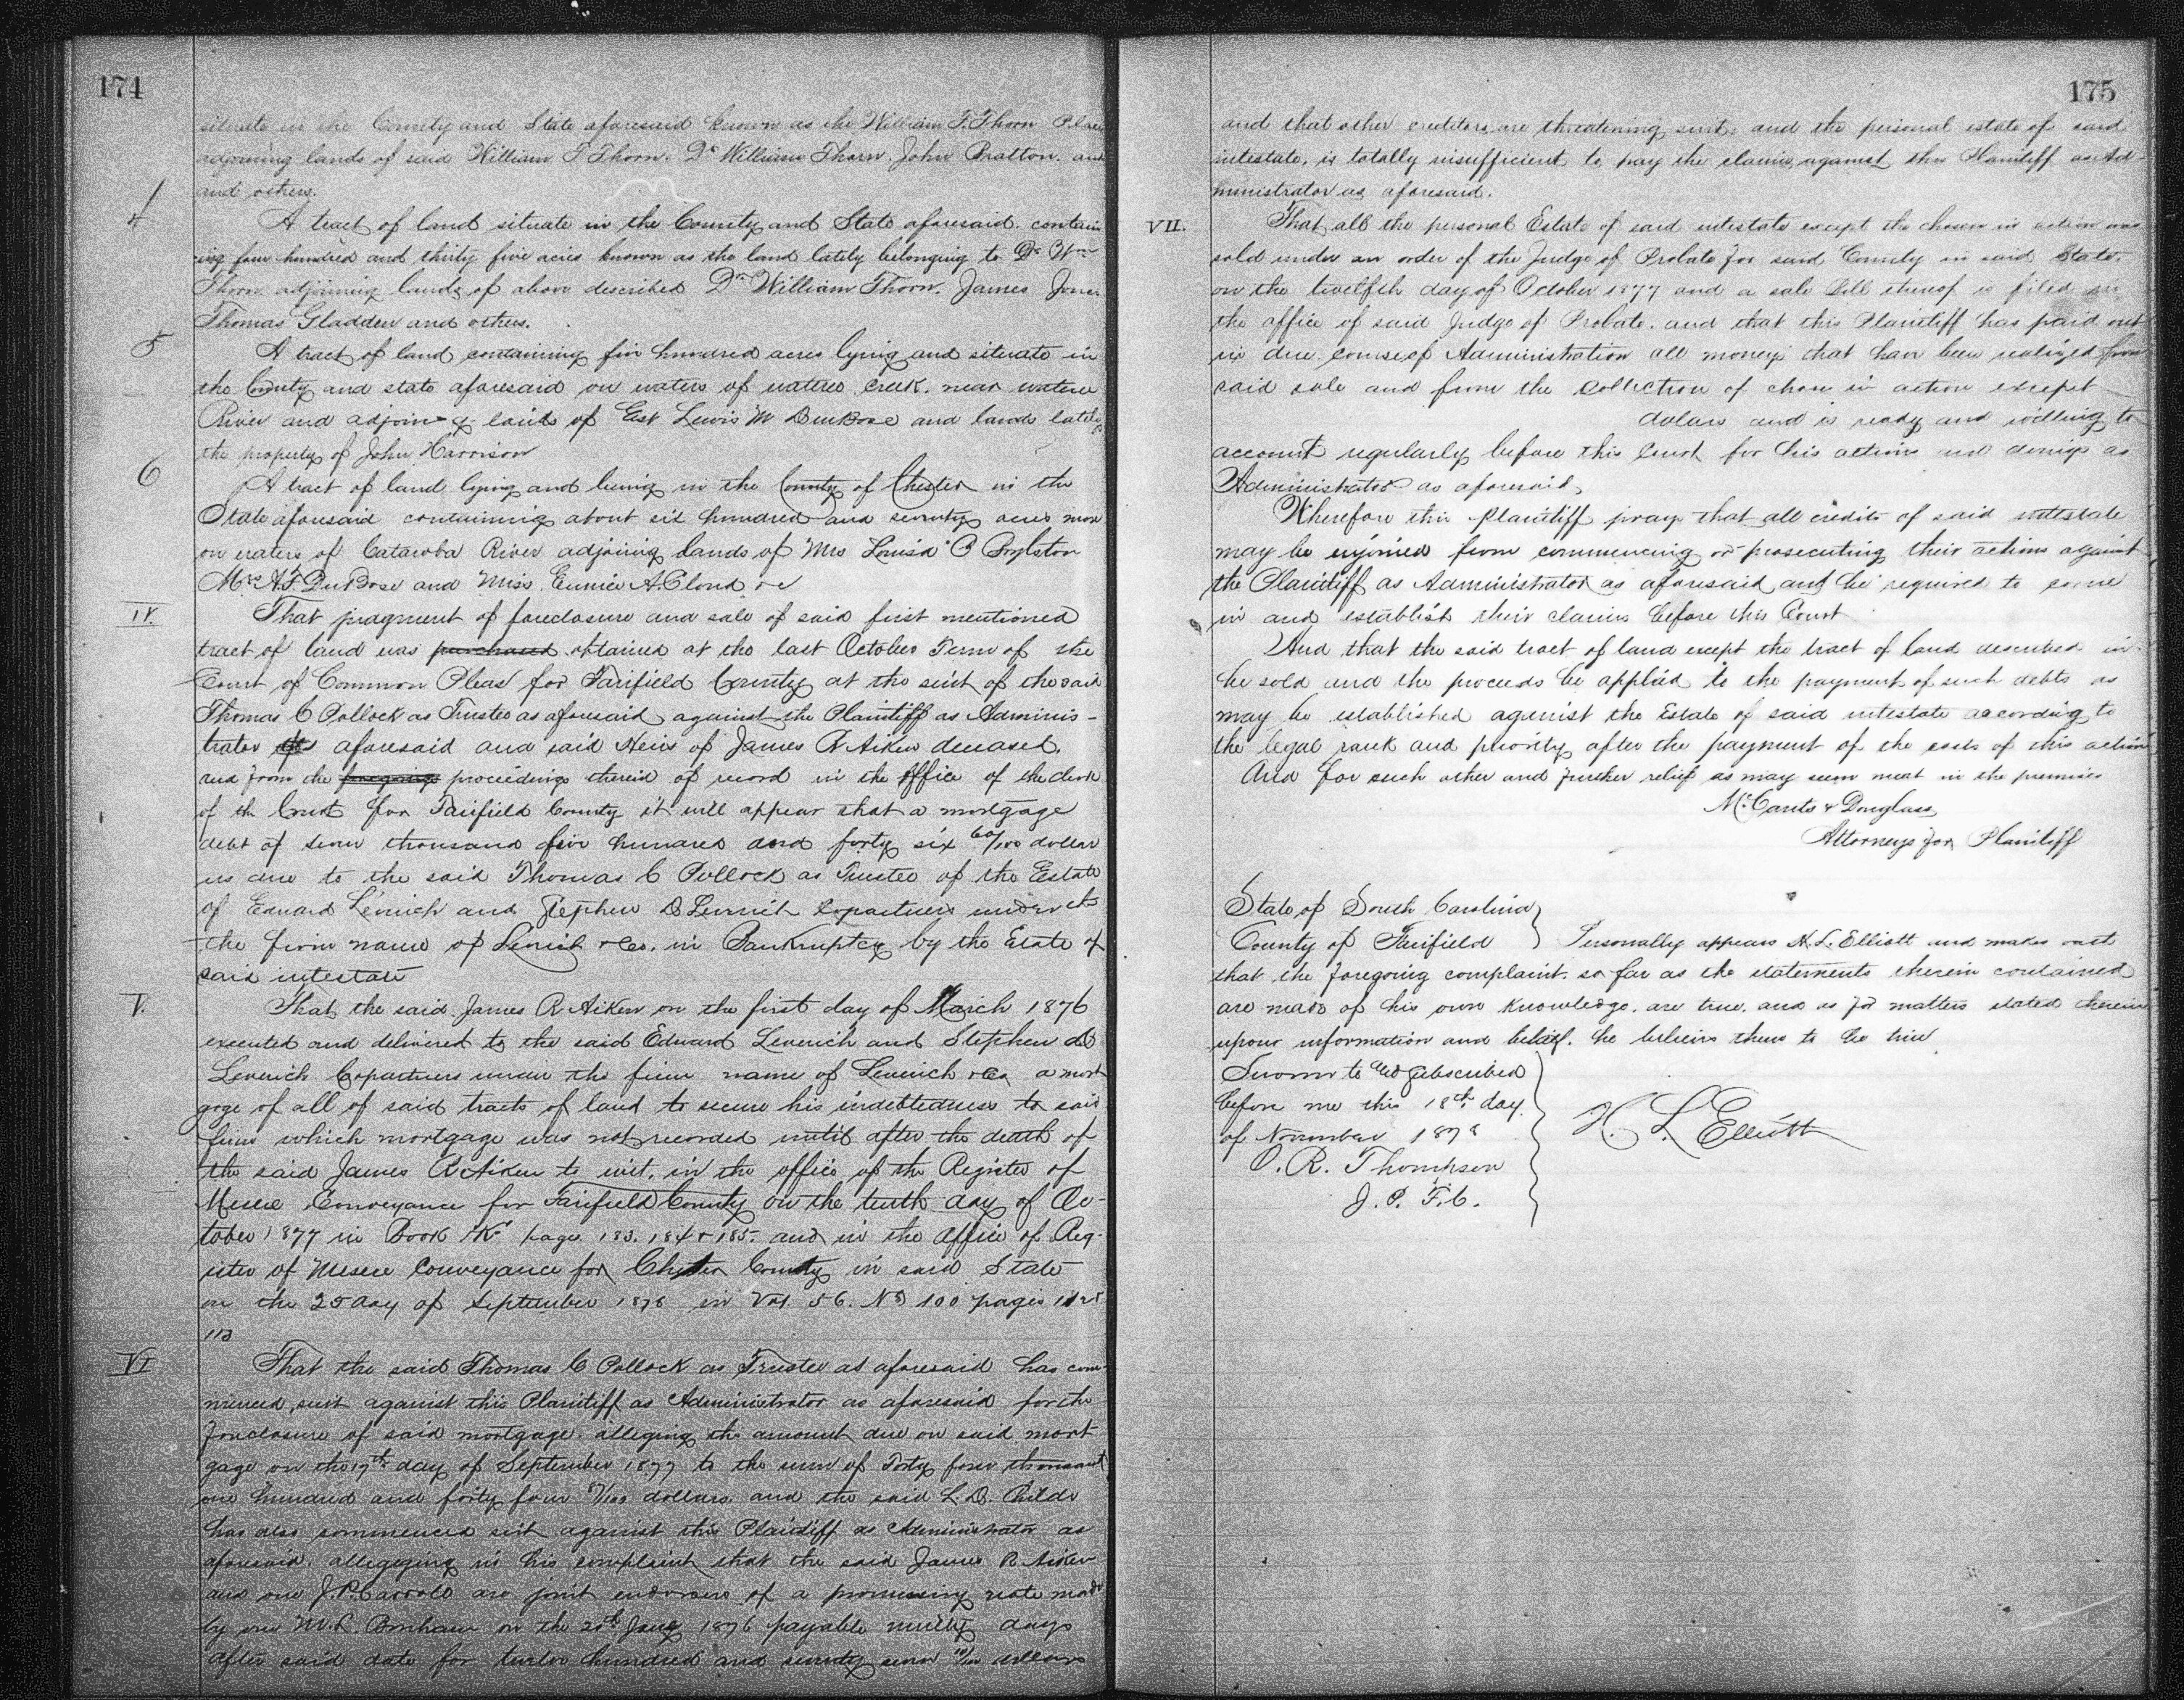 174
situate in the County and State aforesaid known as the William T. Thorn Place
adjoining lands of said William T Thorn. Dr William Thorn. John Bratton. and
and others.
4
A tract of land situate in the County and State aforesaid. contain
ing four hundred and thirty five acres known as the land lately belonging to Dr Wm
Thorn adjoining lands of above described Dr William Thorn. James Jones
Thomas Gladden and others.
5
A tract of land containing five hundred acres lying and situate in
the County and state aforesaid on waters of wateree creek. near wateree
River and adjoining lands of Est Lewis M DuBose and lands lately
the property of John Harrison
6
A tract of land lying and being in the County of Chester in the
State aforesaid containing about six hundred and seventy acres more
on waters of Catawba River adjoining lands of Mrs Louisa B Boylston
Mrs A.F. DuBose and Miss. Eunice A. Cloud
IV.
That judgment of foreclosure and sale of said first mentioned
tract of land was purchased obtained at the last October Term of the
Court of Common Pleas for Fairfield County at the suit of the said
Thomas C Pollock as Trustee as aforesaid against the Plaintiff as Adminis-
trator as aforesaid and said Heirs of James R Aiken deceased.
and from the foregoing proceedings therein of record in the office of the clerk
of the Court for Fairfield County it will appear that a mortgage
debt of seven thousand five hundred and forty six 60/100 dollars
is due to the said Thomas C Pollock as Trustee of the Estate
of Edward Leverich and Stephen D Leverich Copartners under
the firm name of Leverich & Co. in Bankruptcy by the Estate of
said intestate
V.
That the said James R Aiken on the first day of March 1876
executed and delivered to the said Edward Leverich and Stephen D
Leverich Copartners under the firm name of Leverich & Co a mort
gage of all of said tracts of land to secure his indebtedness to said
firm which mortgage was not recorded until after the death of
the said James R Aiken to wit. in the office of the Register of
Mesne Conveyance for Fairfield County on the tenth day of Oc-
tober 1877 in Book "K" page 183. 184 & 185. and in the office of Reg-
ister of Mesne Conveyance for Chester County in said State
on the 25 day of September 1878 in Vol. 56. No 100 pages 112 &
113
VI
That the said Thomas C Pollock as Trustee as aforesaid has com-
menced suit against this Plaintiff as Administrator as aforesaid for the
foreclosure of said mortgage. alleging the amount due on said mort
gage on the 17th day of September 1877 to the sum of Forty four thousand
one hundred and forty four /100 dollars and the said L. D. Childs
has also commenced suit against this Plaintiff as Administrator as
aforesaid. allegeging in his complaint that the said James R. Aiken
and one J.P. Carroll are joint endorsers of a promissory note made
by one M.L. Bonham on the 20th Jany 1876 payable ninety days
after said date for twelve hundred and seventy seven /100 dollars
175
and that other creditors are threatening suit, and the personal estate of said
intestate, is totally insufficient to pay the claims against this Plaintiff as Ad-
ministrator as aforesaid.
VII.
That all the personal Estate of said intestate except the chose in action was
sold under an order of the Judge of Probate for said County in said State.
on the twelfth day of October 1877 and a sale Bill thereof is filed in
the office of said Judge of Probate. and that this Plaintiff has paid out
in due course of Administration all moneys that have been realized from
said sale and from the collection of chose in action except
dollars and is ready and willing to
account regularly before this Court for his actions and doings as
Administrator as aforesaid.
Wherefore this Plaintiff prays that all credits of said intestate
may be enjoined from commencing or prosecuting their actions against
the Plaintiff as Administrator as aforesaid and be required to come
in and establish their claims before this Court
And that the said tract of land except the tract of land described in
be sold and the proceeds be applied to the payment of such debts as
may be established against the Estate of said intestate according to
the legal rank and priority after the payment of the costs of this action
And for such other and further relief as may seem meet in the premises
McCants & Douglass
Attorneys for Plaintiff
State of South Carolina
County of Fairfield } Personally appears H. L. Elliott and makes oath
that the foregoing complaint. so far as the statements therein contained
are made of his own knowledge. are true. and as for matters stated therein
upon information and belief. he believes them to be true
Sworn to and subscribed
before me this 18th day
of November 1878
O. R. Thompson
J. P. F. C.
H. L. Elliott